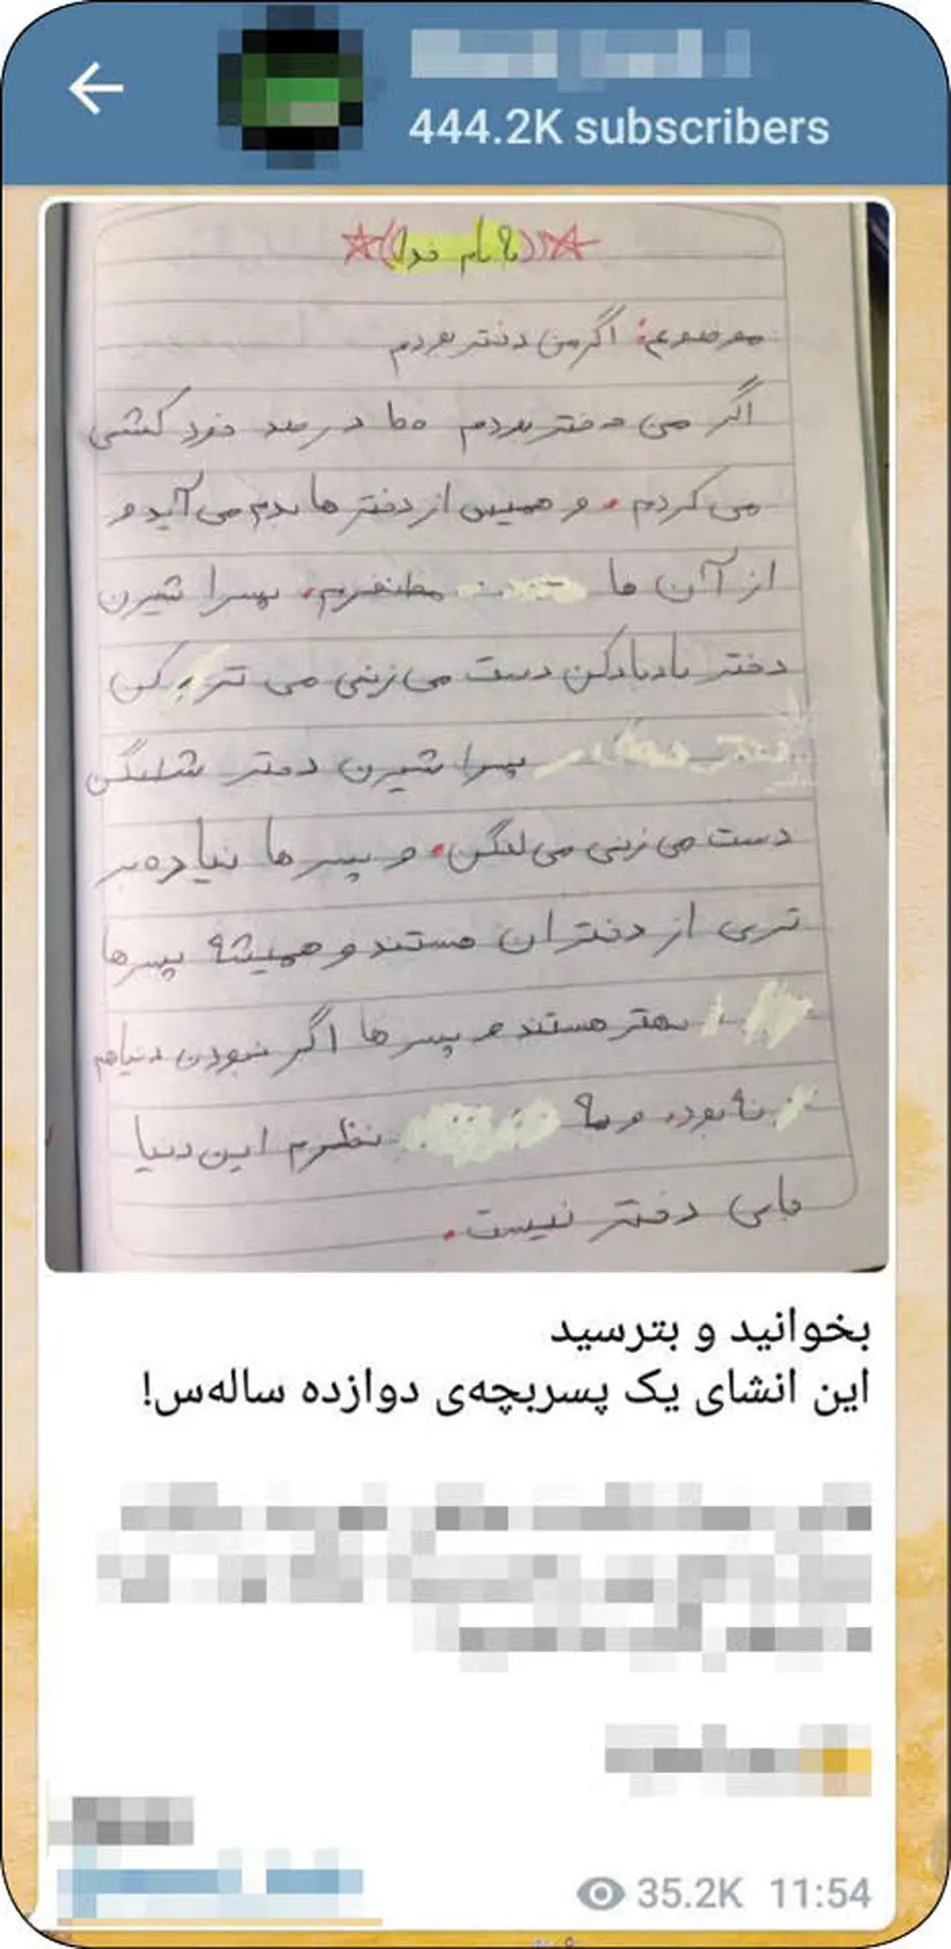 444.2K subscribers
((به نام خدا))
موضوع: اگر من دختر بودم
اگر من دختر بودم ۱۰۰ درصد خود کشی
می کردم. و همیس از دختر ها بدم می آید و
از آن ها متنفرم. پسرا شیرن
دختر بادبادکن دست می زنی می ترکن
پسرا شیرن دختر شلنگن
دست می زنی می لنگن. و پسر ها نیاده بر
تری از دختران هستند و همیشه پسرها
بهتر هستند و پسر ها اگر نبودن دنیا هم
نه بود. و به نظرم این دنیا
جای دختر نیست.
بخوانید و بترسید
این انشای یک پسربچه‌ی دوازده ساله‌س!
35.2K 11:54